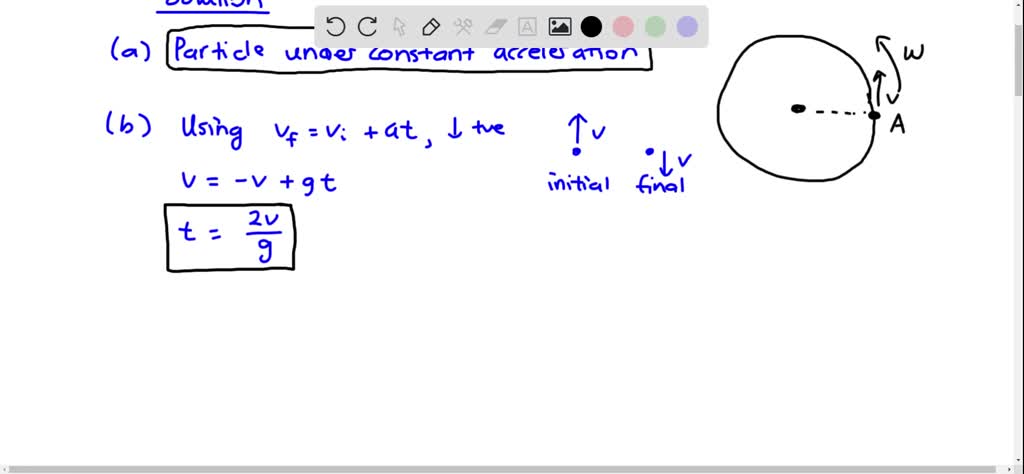 Solution
(a) Particle under constant acceleration
(b) Using v_f = v_i + at, ↓ +ve
v = -v + gt
t = 2v/g
↑ v
↓ v
initial final
w
v
A